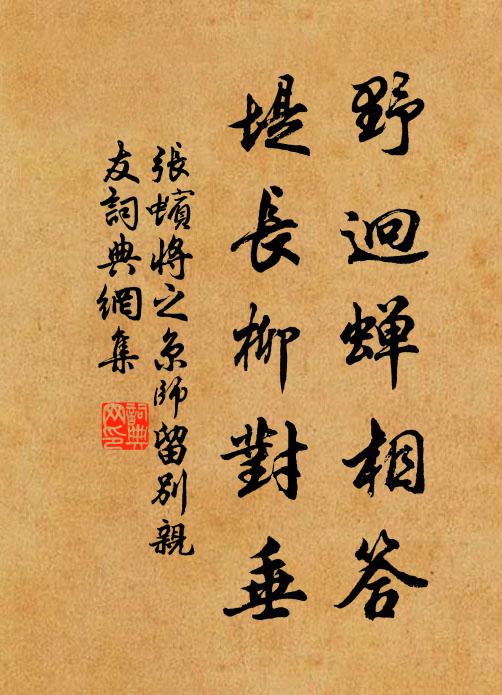 野迥蟬相答
堤長柳對垂
張蠙將之京師留別親
友詞典網集
詞典
网印